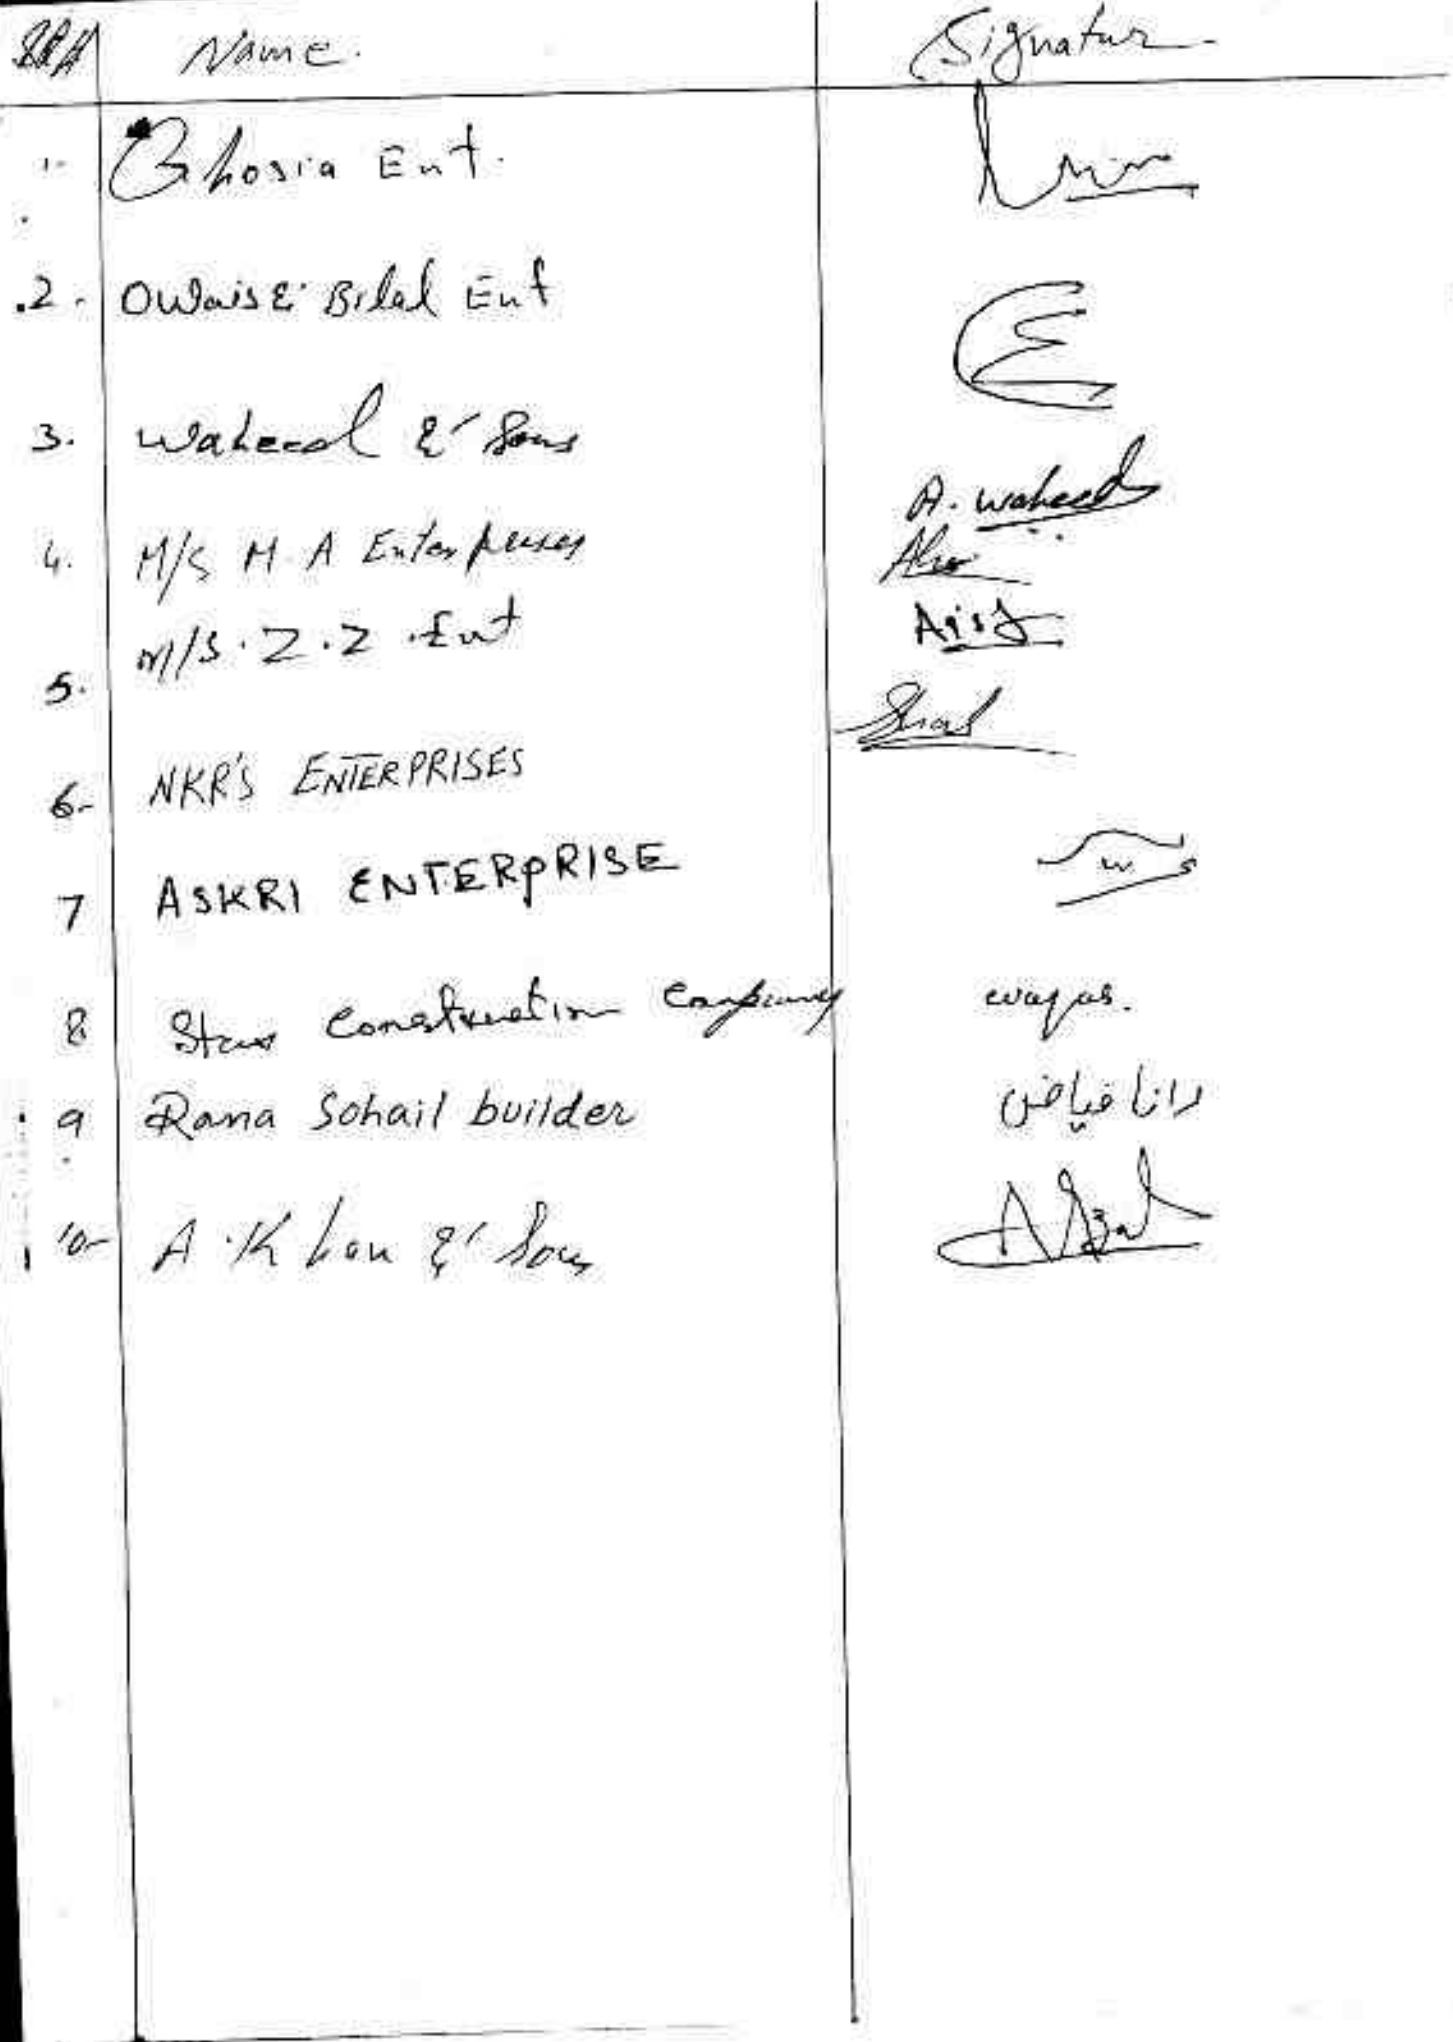 Name. Signatur
1- Ghosia Ent.
.2. Owais & Bilal Ent
3. Waheed & Sons
A. Waheed
4. M/S M. A Enterprises
M/S. Z.Z. Ent
5.
6- NKR'S ENTERPRISES
7 ASKRI ENTERPRISE
8 Star Construction Company waqas.
9 Rana Sohail builder رانا فیاض
10- A. Khan & Sons